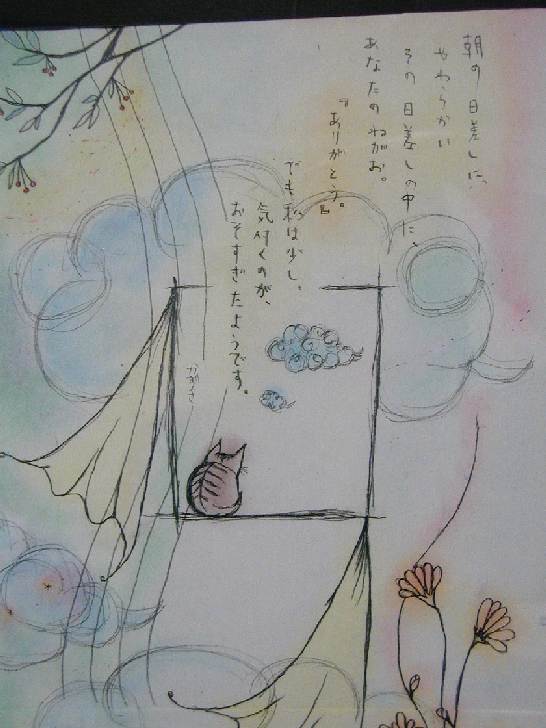 朝の日差しに、
やわらかい
その日差しの中に、
あなたのねがお。
『ありがとう。』
でも私は少し、
気付くのが、
おそすぎたようです。